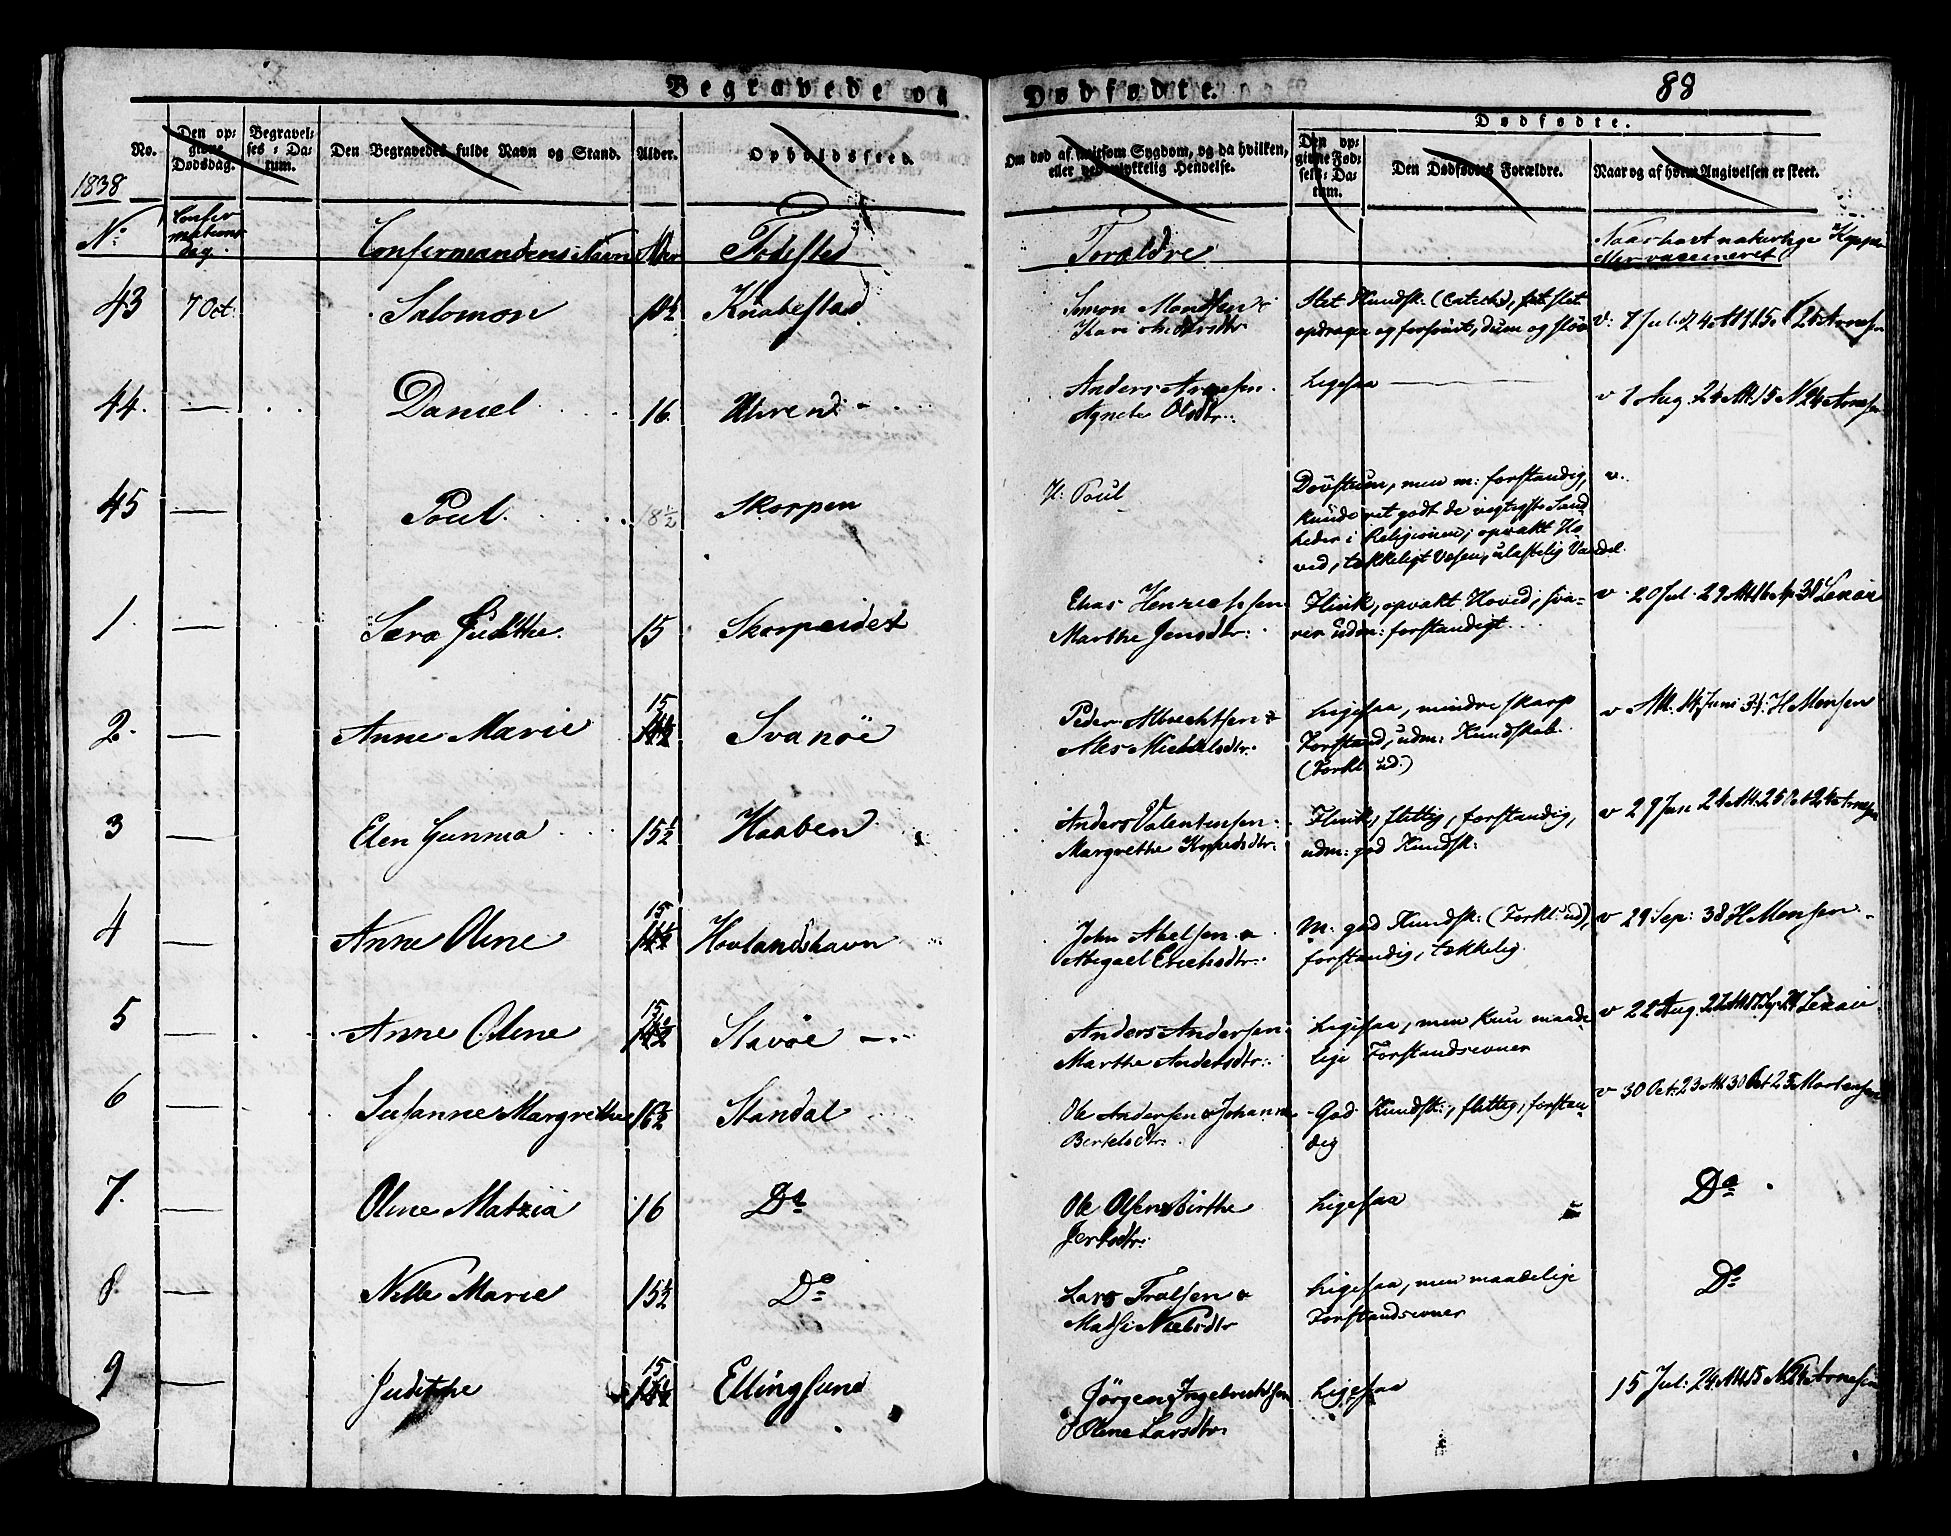 Begravede og Dødfødte.
88
No.
Den opgivne Dødsdag.
Begravelses-Datum.
Den Begravedes fulde Navn og Stand.
Alder.
Opholdssted.
Om død af smitsom Sygdom, og da hvilken,
eller ved ulykkelig Hendelse.
Dødfødte.
Den opgivne Fødsels-Datum.
Den Dødfødtes Forældre.
Naar og af hvem Angivelsen er skeet.
1838
No Confirmationsdag. Confirmandens Navn Alder Fødested Forældre Naar havt naturlige Kopper eller vaccineret
43 7 Oct: Salomon Knabestad
Simon Mondsen &
Kari
Slet Kundsk: (Catech),
dum og sløv
44. — Daniel 16.
Anders Arnesen
Agnete Olsdtr:
Ligesaa —
v 24 Att. 15 N 24 Arnesen
45 — Poul. 18½ Skorpen
Poul
Døvstum, men m: forstandig,
kunde ret godt de vigtigste Sand
heder i Religionen; opvakt Ho
ved, tækkeligt Væsen, ulastelig Vandel.
v.
1. — Sara Judithe. 15 Skorpeidet
Elias Henrichsen
Marthe Jensdtr:
Flink, opvakt Hoved; sva-
rer udm: forstandigt.
v 20 Jul. 29
2. — Anne Marie 15 14½ Svanöe
Peder Albrechtsen &
Ales Michelsdtr:
Ligesaa, mindre skarp
Forstand, udm: Kundskab.
(Forkl. ud.)
v Att. 14 Juni H Monsen
3 — Elen Gunnia 15½ Haaben
Anders Valentinsen
Margrethe
Flink, flittig, forstandig,
udm: god Kundsk:
v 29 Jan 24 Att. 25 Oct 24 Arnesen
4 — Anne Oline 15 14½ Hovlandshavn
John Abelsen &
Abigael Erichsdtr:
M. god Kundsk: (Forkl: ud),
forstandig, tækkelig.
v 29 Sep: 38 H Monsen
5 — Anne Oline 15 14½ Stavöe —
Anders Andersen
Marthe Andersdtr:
Ligesaa, men kun maade
lige Forstandsevner
v 22 Aug.
6 — Susanne Margrethe 16½ Standal
Ole Andersen & Johanne
Bertelsdtr:
God Kundsk:, flittig, forstan-
dig
v 30 Oct: 23 Att 30 Oct 23 Mortensen
7. — Oline Matzia 16 Do
Ole Olsen & Birthe
Jerksdtr:
Ligesaa
Do
8. — Nille Marie 15½ Do
Lars &
Madsi Nielsdtr
Ligesaa, men maadelige
Forstandsevner
Do
9 — Judithe 15 14½ Ellingsund
Jörgen Ingebrichtsen
& Oline Larsdtr:
Ligesaa
15 Jul: 24 Att 15 N 24 Arnesen